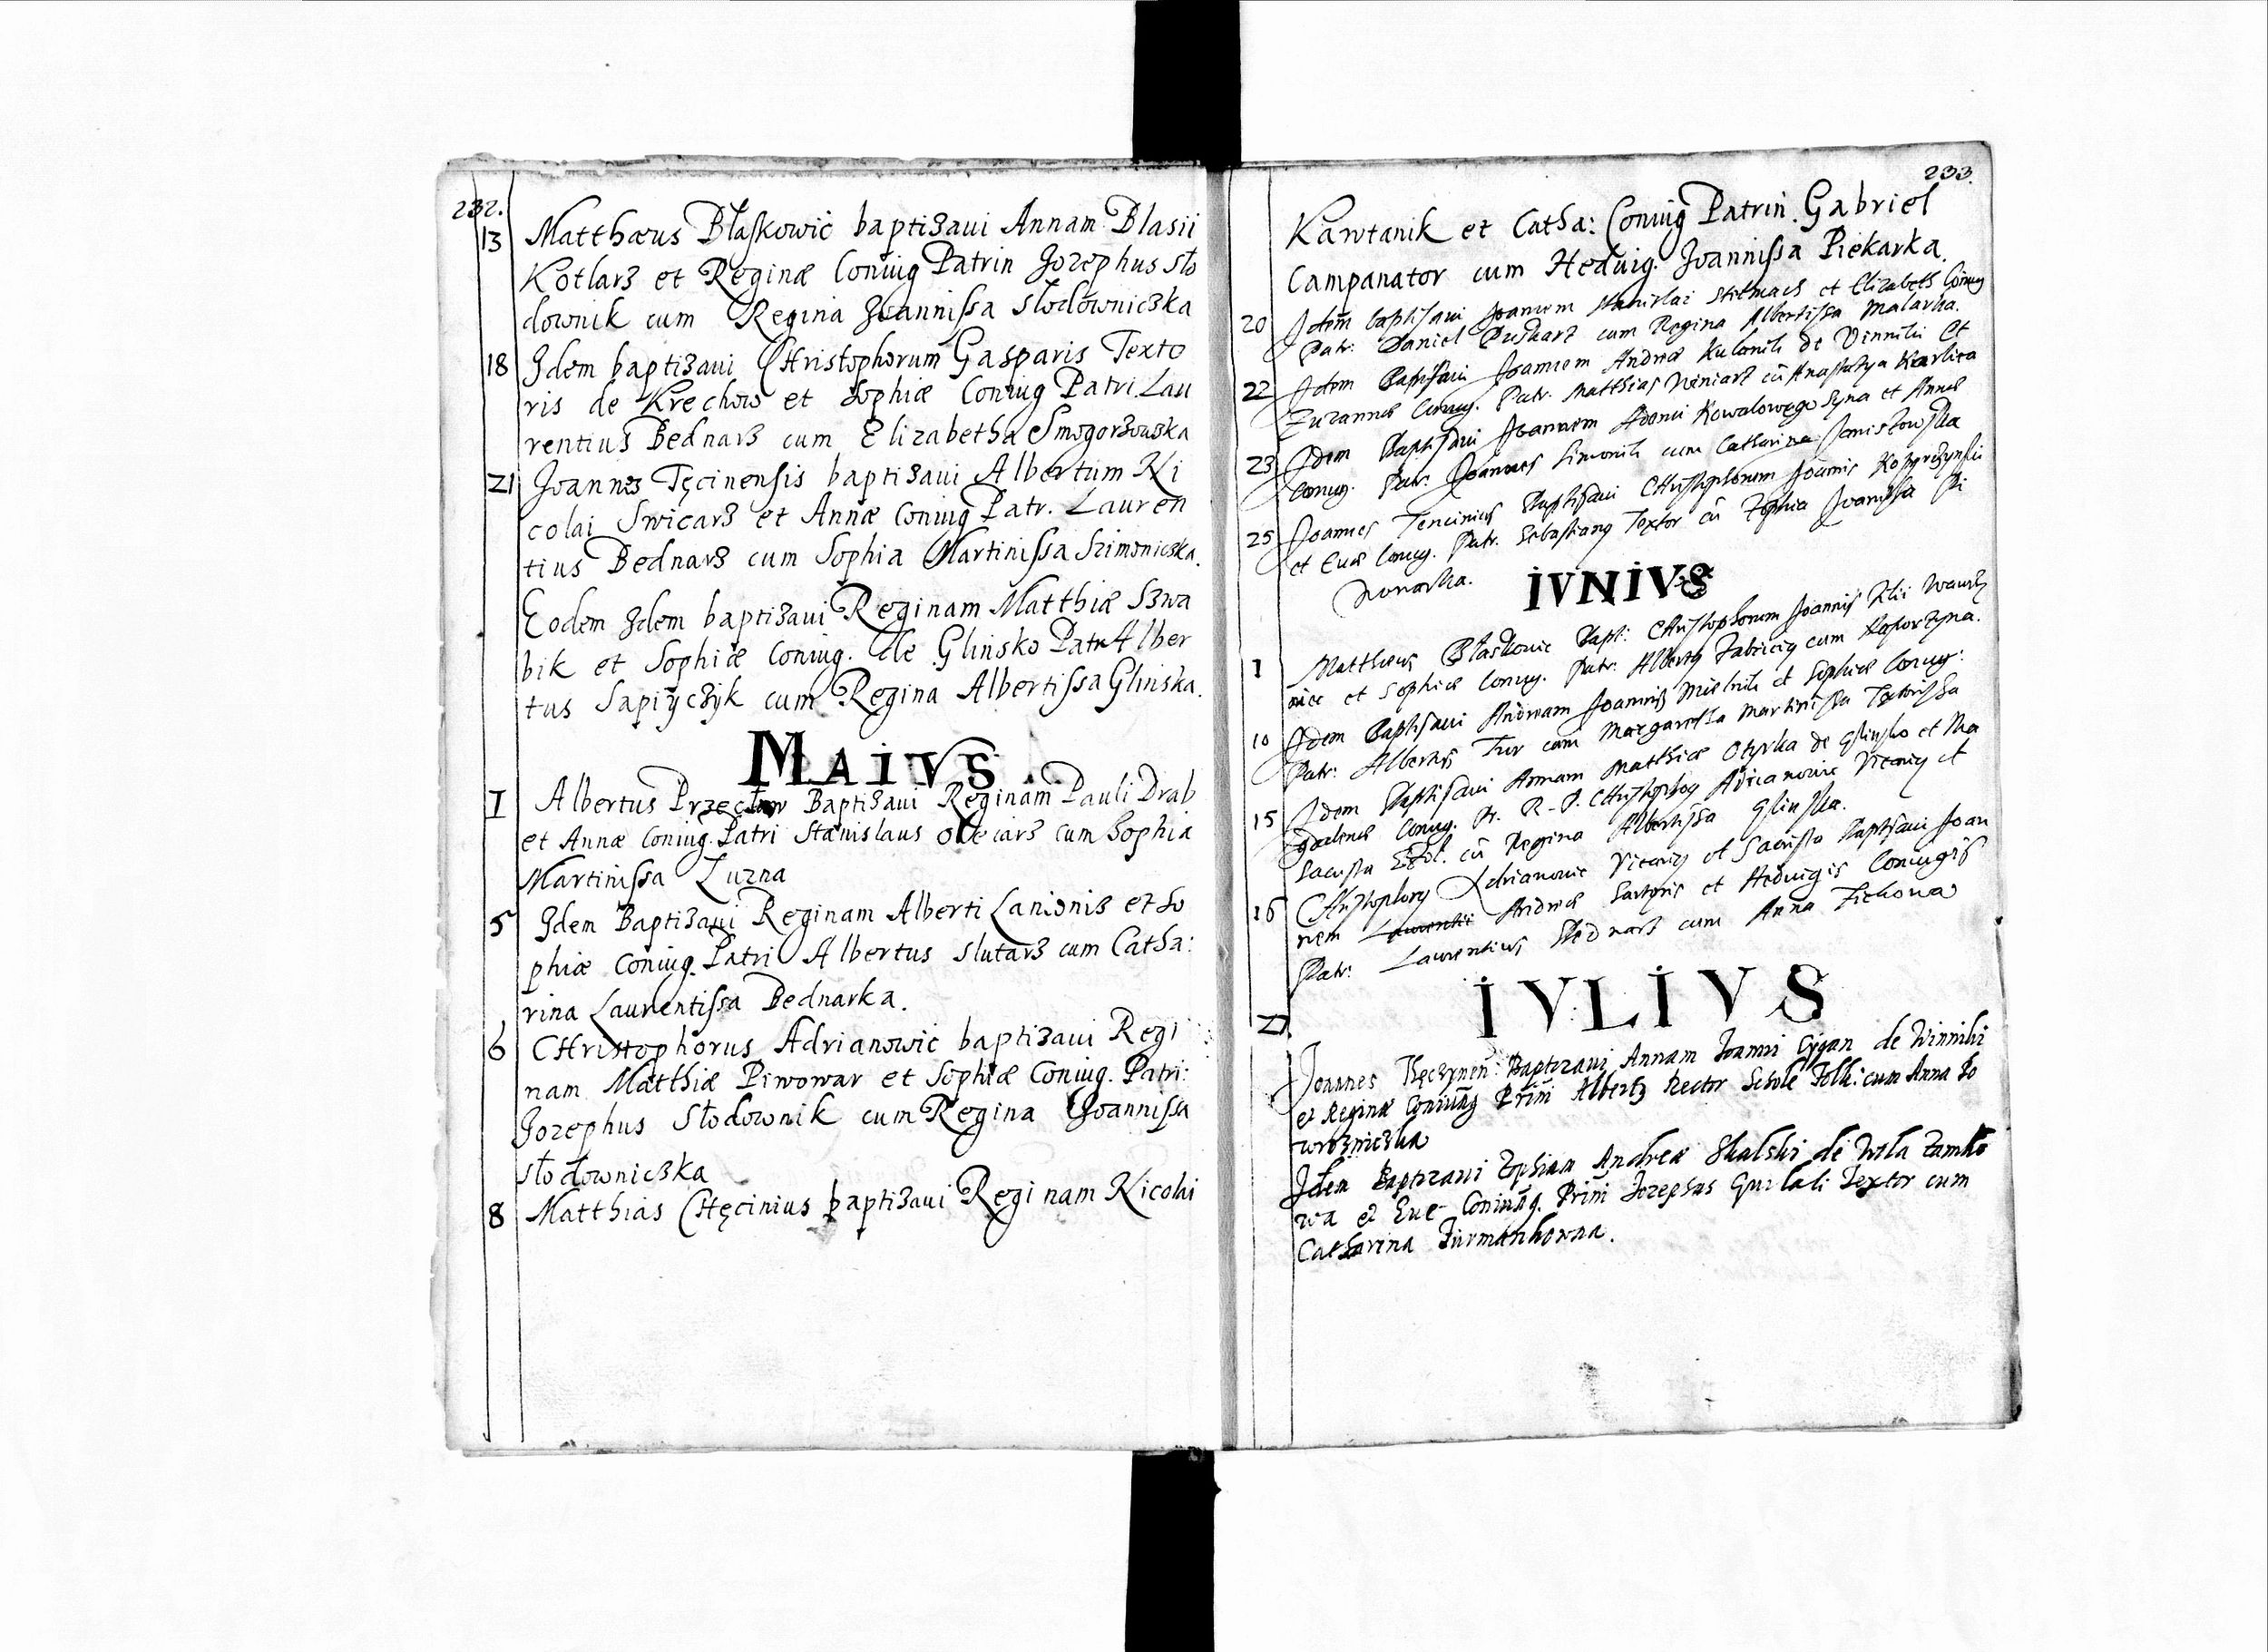 232.
13 Matthæus Błaskowić baptizaui Annam Blasii
Kotlarz et Reginæ Coniug Patrin Jozephus Sło
downik cum Regina Joannissa Słodowniczka
18 Idem baptizaui Christophorum Gasparis Texto
ris de Krechow et Sophiæ Coniug Patri. Lau
rentius Bednarz cum Elizabetha Smogorzowska
21 Joannes Tęcinensis baptizaui Albertum Ni
colai Swicarz et Annæ Coniug Patr. Lauren
tius Bednarz cum Sophia Martinissa Szimoniczka.
Eodem Idem baptizaui Reginam Matthiæ Szwa
bik et Sophiæ Coniug. de Glinsko Patr Alber
tus Sapiÿczÿk cum Regina Albertissa Glinska.
MAIVS
1 Albertus Przecław Baptizaui Reginam Pauli Drab
et Annæ Coniug. Patri Stanislaus Oleiarz cum Sophia
Martinissa Luzna
5 Idem Baptizaui Reginam Alberti Lanionis et So
phiæ Coniug. Patri Albertus Slutarz cum Catha:
rina Laurentissa Bednarka.
6 Christophorus Adrianowic baptizaui Regi
nam Matthiæ Piwowar et Sophiæ Coniug. Patri:
Jozephus Słodownik cum Regina Joannissa
słodowniczka
8 Matthias Chęcinius baptizaui Reginam Nicolai
233.
Kawtanik et Catha: Coniug Patrin. Gabriel
Campanator cum Heduig. Joannissa Piekarka.
20 Idem baptisaui Joannem Stanislai Stelmach et Elizabeth Coniug
Patr: Daniel Puskarz cum Regina Albertissa Malarka.
22 Idem Baptisaui Joannem Andreæ Kulonik de Vinniki et
Zuzannæ Coniug. Patr. Matthias Winiarz cũ Anastazya Krarlica
23 Idem Baptisaui Joannem Adami Kowalowego Syna et Annæ
Coniug. Patr. Joannes Simonik cum Catharina Janiszowska
25 Joannes Tencinius Baptisaui Christophorum Joannis
et Euæ Coniug. Patr. Sebastiang Textor cũ Zophia Joanissa Pi
wowarka.
IVNIVS
1 Matthæus Błaskowic Bapt: Christophorum Joannis
et Sophiæ Coniug. Patr: Albertg Fabricig cum
10 Idem Baptisaui Andream Joannis Mielnik et Sophiæ Coniug:
Patr: Albertus Tur cum Margaretha Martinissa Textorissa
15 Idem Baptisaui Annam Matthiæ Otyrka de Glinsko et Ma
gdalenæ Coniug. Pr. R. P. Christophog Adrianowic Vicarig et
Sacrista Zol. cũ Regina Albertissa Glinska.
16 Christophorg Adrianowic Vicarig et Sacrista Baptisaui Joan
nem Laurentii Andreæ Sartoris et Heduigis Coniugis
Patr: Laurentius Bednarz cum Anna Zickowa
IVLIVS
2 Joannes Thęczynen: Baptizaui Annam Joanni Cygan de Winniki
et Reginæ Coniug Prini Albertg Rector Scholæ Zolk: cum Anna Po
wrozniczka
Idem Baptizaui Zophiam Andreæ Skalski de Wola Zamko
wa et Euæ Coniug. Prini Jozephus Guzlali Textor cum
Catharina Furmankowna.